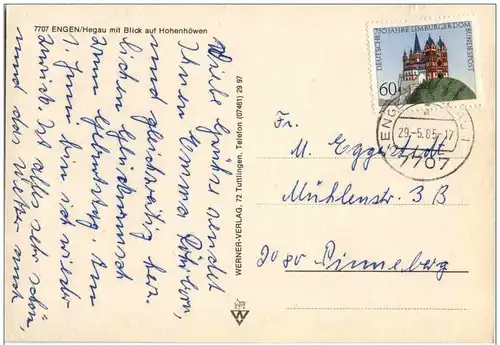 7707 ENGEN/Hegau mit Blick auf Hohenhöwen
Viele Grüße sendet
Ihnen Emma
und gleichzeitig herz-
lichen Glückwunsch
zum Geburtstag. Am
1. Juni bin ich wieder
zurück. Ist alles sehr schön,
und das Wetter auch
WERNER-VERLAG, 72 Tuttlingen, Telefon (07461) 29 97
W
DEUTSCHE BUNDESPOST
750 JAHRE LIMBURGER DOM
60
ENGEN
29.-5.85-17
7707
Fr.
M. Eggerstedt
Mühlenstr. 3 B
2080 Pinneberg